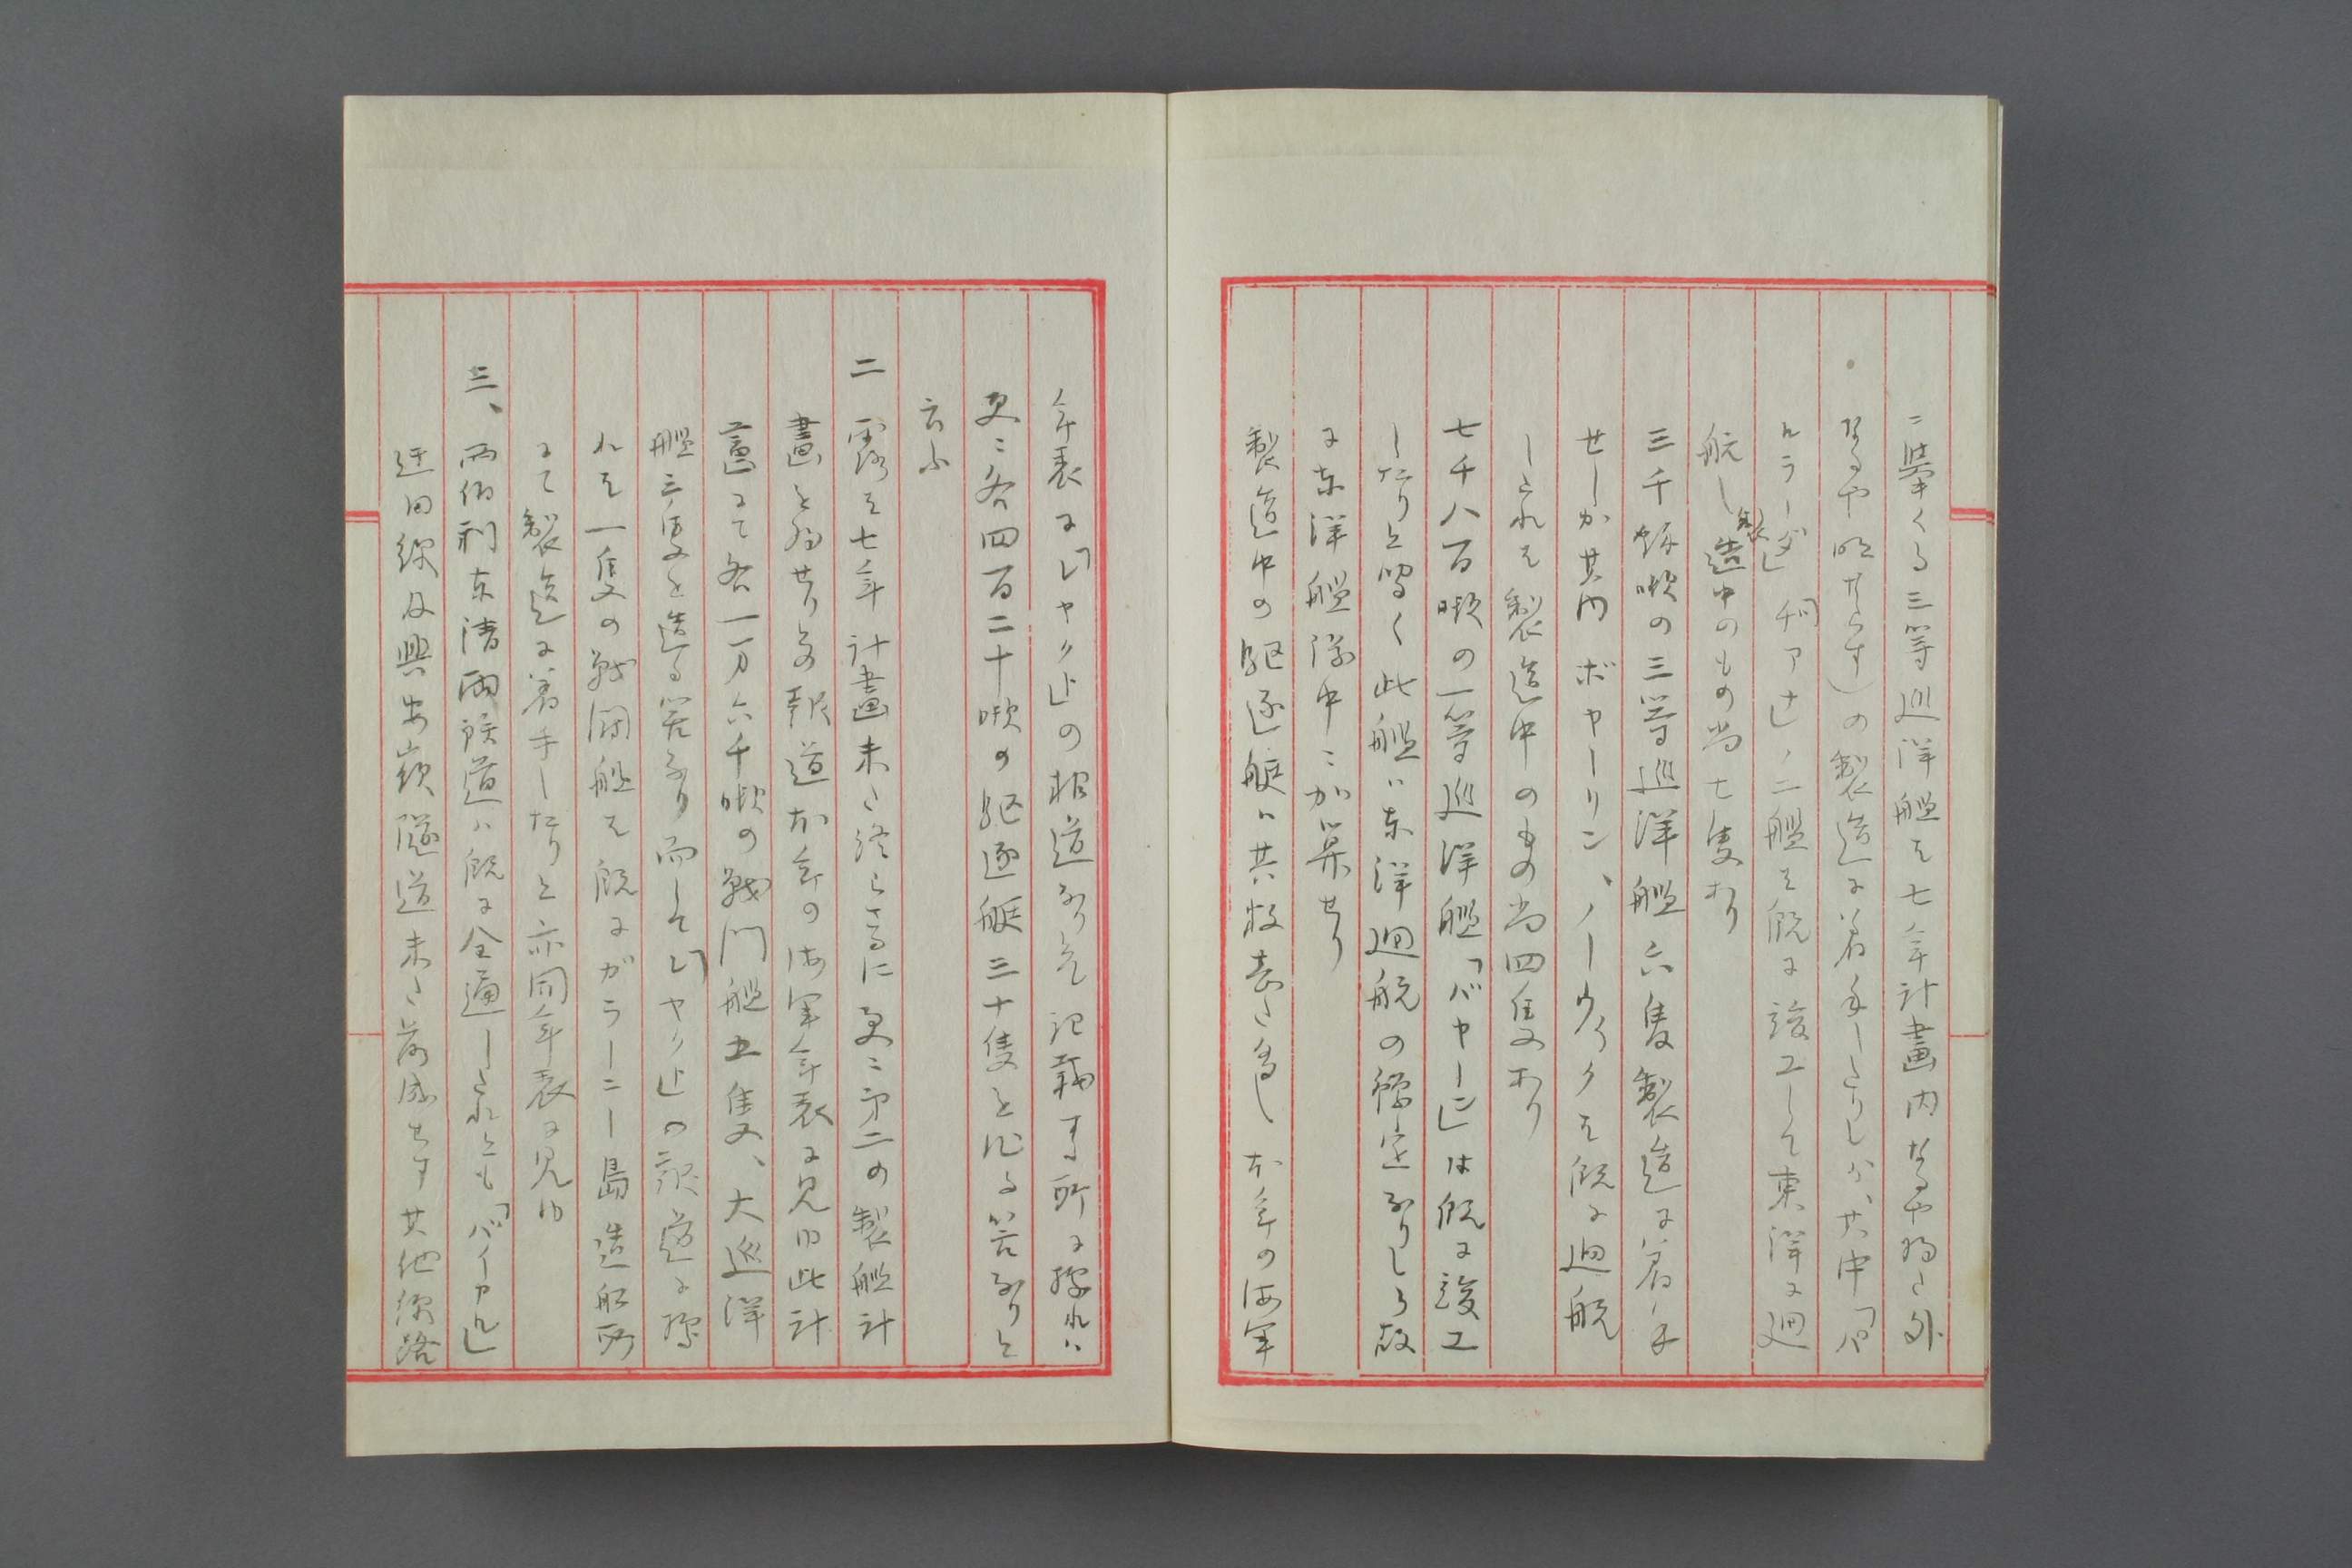 ニ挙くる三等巡洋艦は七年計畫内なるや将た外
なるや明ならす)の製造に着手したりしか、其中「パ
ルラーダ」「ヂアナ」ノ二艦は既に竣工して東洋に廻
航し製造中のもの尚七隻あり
三千餘噸の三等巡洋艦六隻製造に着手
せしか其内ボヤーリン、ノーウイクは既に廻航
しされは製造中のもの尚四隻あり
七千八百噸の一等巡洋艦「バヤーン」は既に竣工
したりと聞く此艦ハ東洋廻航の豫定なりしも故
に東洋艦隊中ニ加算せり
製造中の駆逐艇ハ其数甚た多し本年の海軍
年表に「レヤクト」の報道なりとて記載する所に據れハ
更ニ各四百二十噸の駆逐艇三十隻を作る筈なりと
云ふ
二 露は七年計畫未た終らさるに更ニ第二の製艦計
畫を為せり其報道本年の海軍年表に見ゆ此計
畫にて各一万六千噸の戦鬥艦五隻、大巡洋
艦三隻を造る筈なり而して「レヤクト」の報道に據
れは一隻の戦鬪艦は既にガラーニー島造船所
にて製造に着手したりと亦同年表に見ゆ
三、西伯利東清兩鉄道ハ既に全通しされとも「バイカル」
迂回線及興安嶺隧道未た落成せす其他線路